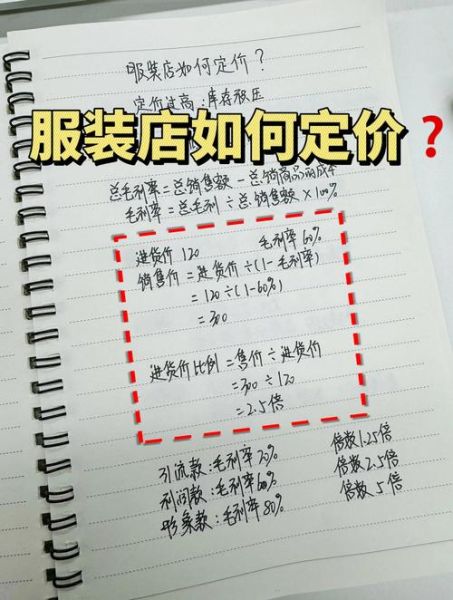 服装店如何定价？
定价过高：库存积压
服装店如何定价？
总毛利率=总销售额-总销商品的成本
毛利率=总毛利÷总销售额×100%
进货价 120 毛利率60%
销售价=进货价÷(1-毛利率)
=120÷(1-60%)
=300
进货价比例=售价÷进货价
=300÷120
=2.5倍
引流款：毛利率20% 倍数1.25倍
利润款：毛利率60% 倍数2.5倍
形象款：毛利率80% 倍数5倍